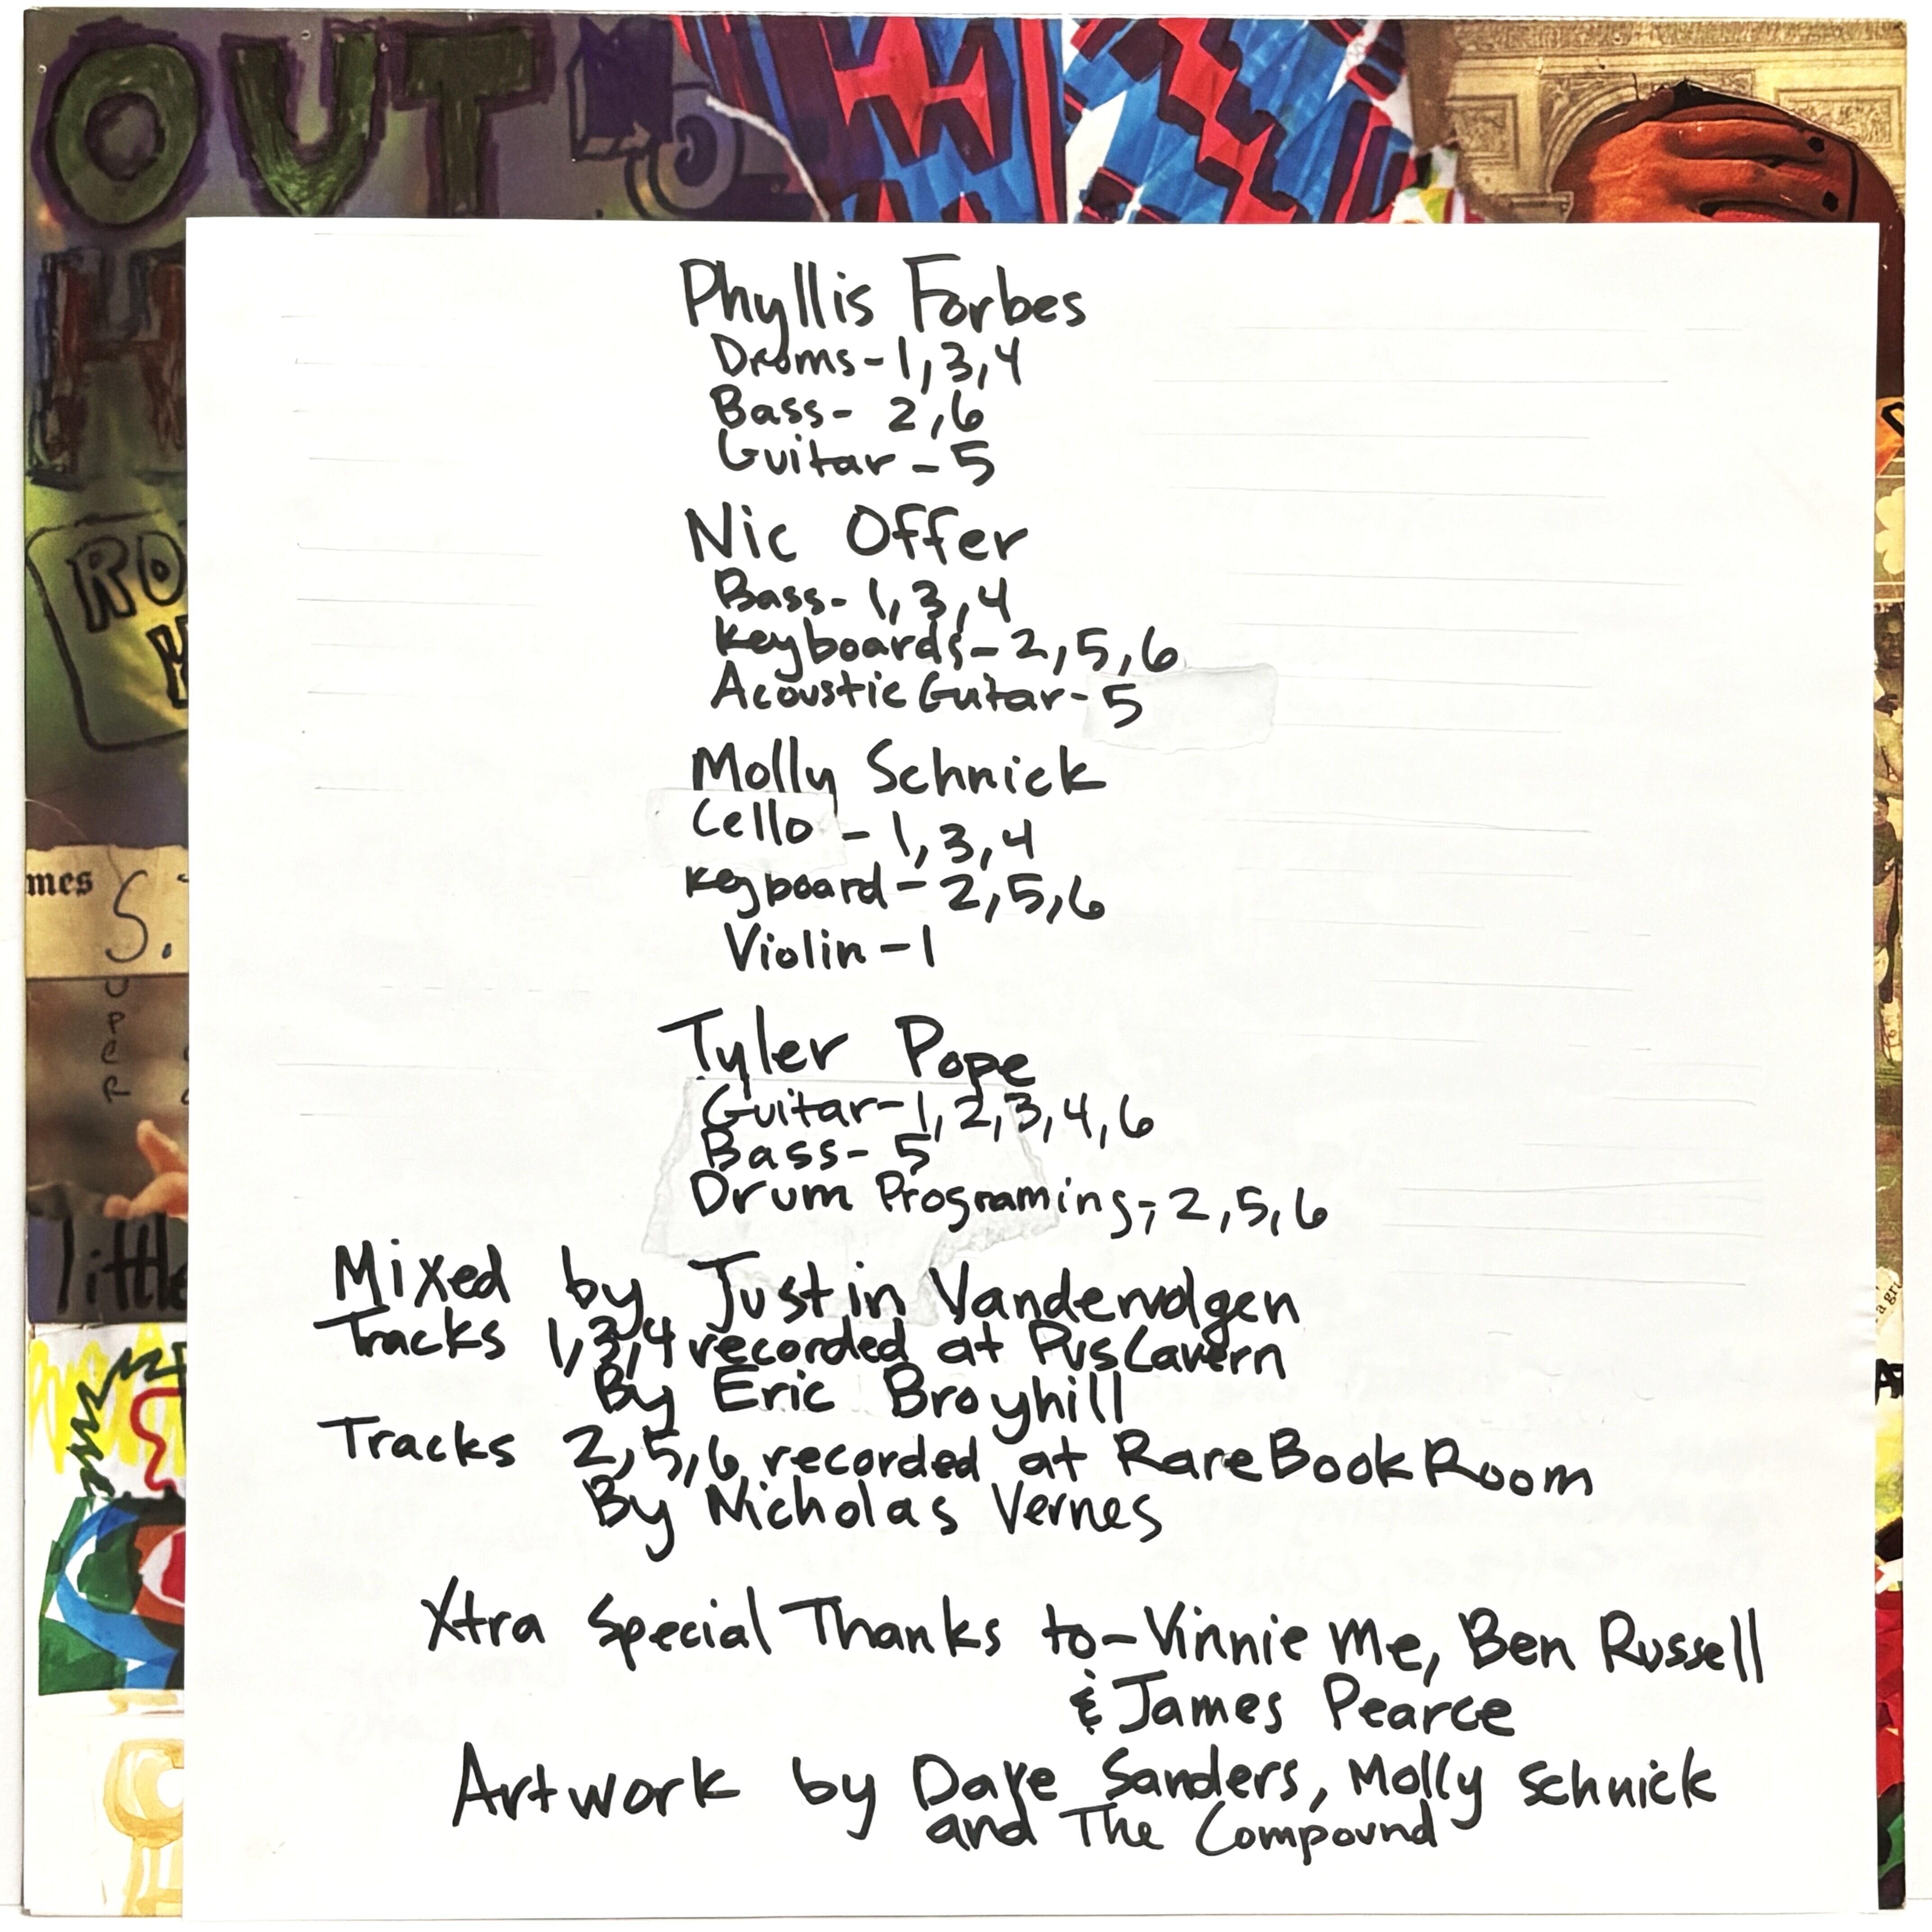 OUT
RO
mes S.
U
P
e
R
little
a gr
Phyllis Forbes
Drums-1,3,4
Bass- 2,6
Guitar-5
Nic Offer
Bass-1,3,4
Keyboards-2,5,6
Acoustic Gutar-5
Molly Schnick
Cello -1,3,4
Keyboard-2,5,6
Violin-1
Tyler Pope
Guitar-1,2,3,4,6
Bass-5
Drum Programing,-2,5,6
Mixed by Justin Vandervolgen
Tracks 1,3,4 recorded at Pus Cavern
By Eric Broyhill
Tracks 2,5,6 recorded at Rare Book Room
By Nicholas Vernes
Xtra Special Thanks to-Vinnie Me, Ben Russell
& James Pearce
Artwork by Dave Sanders, Molly Schnick
and The Compound